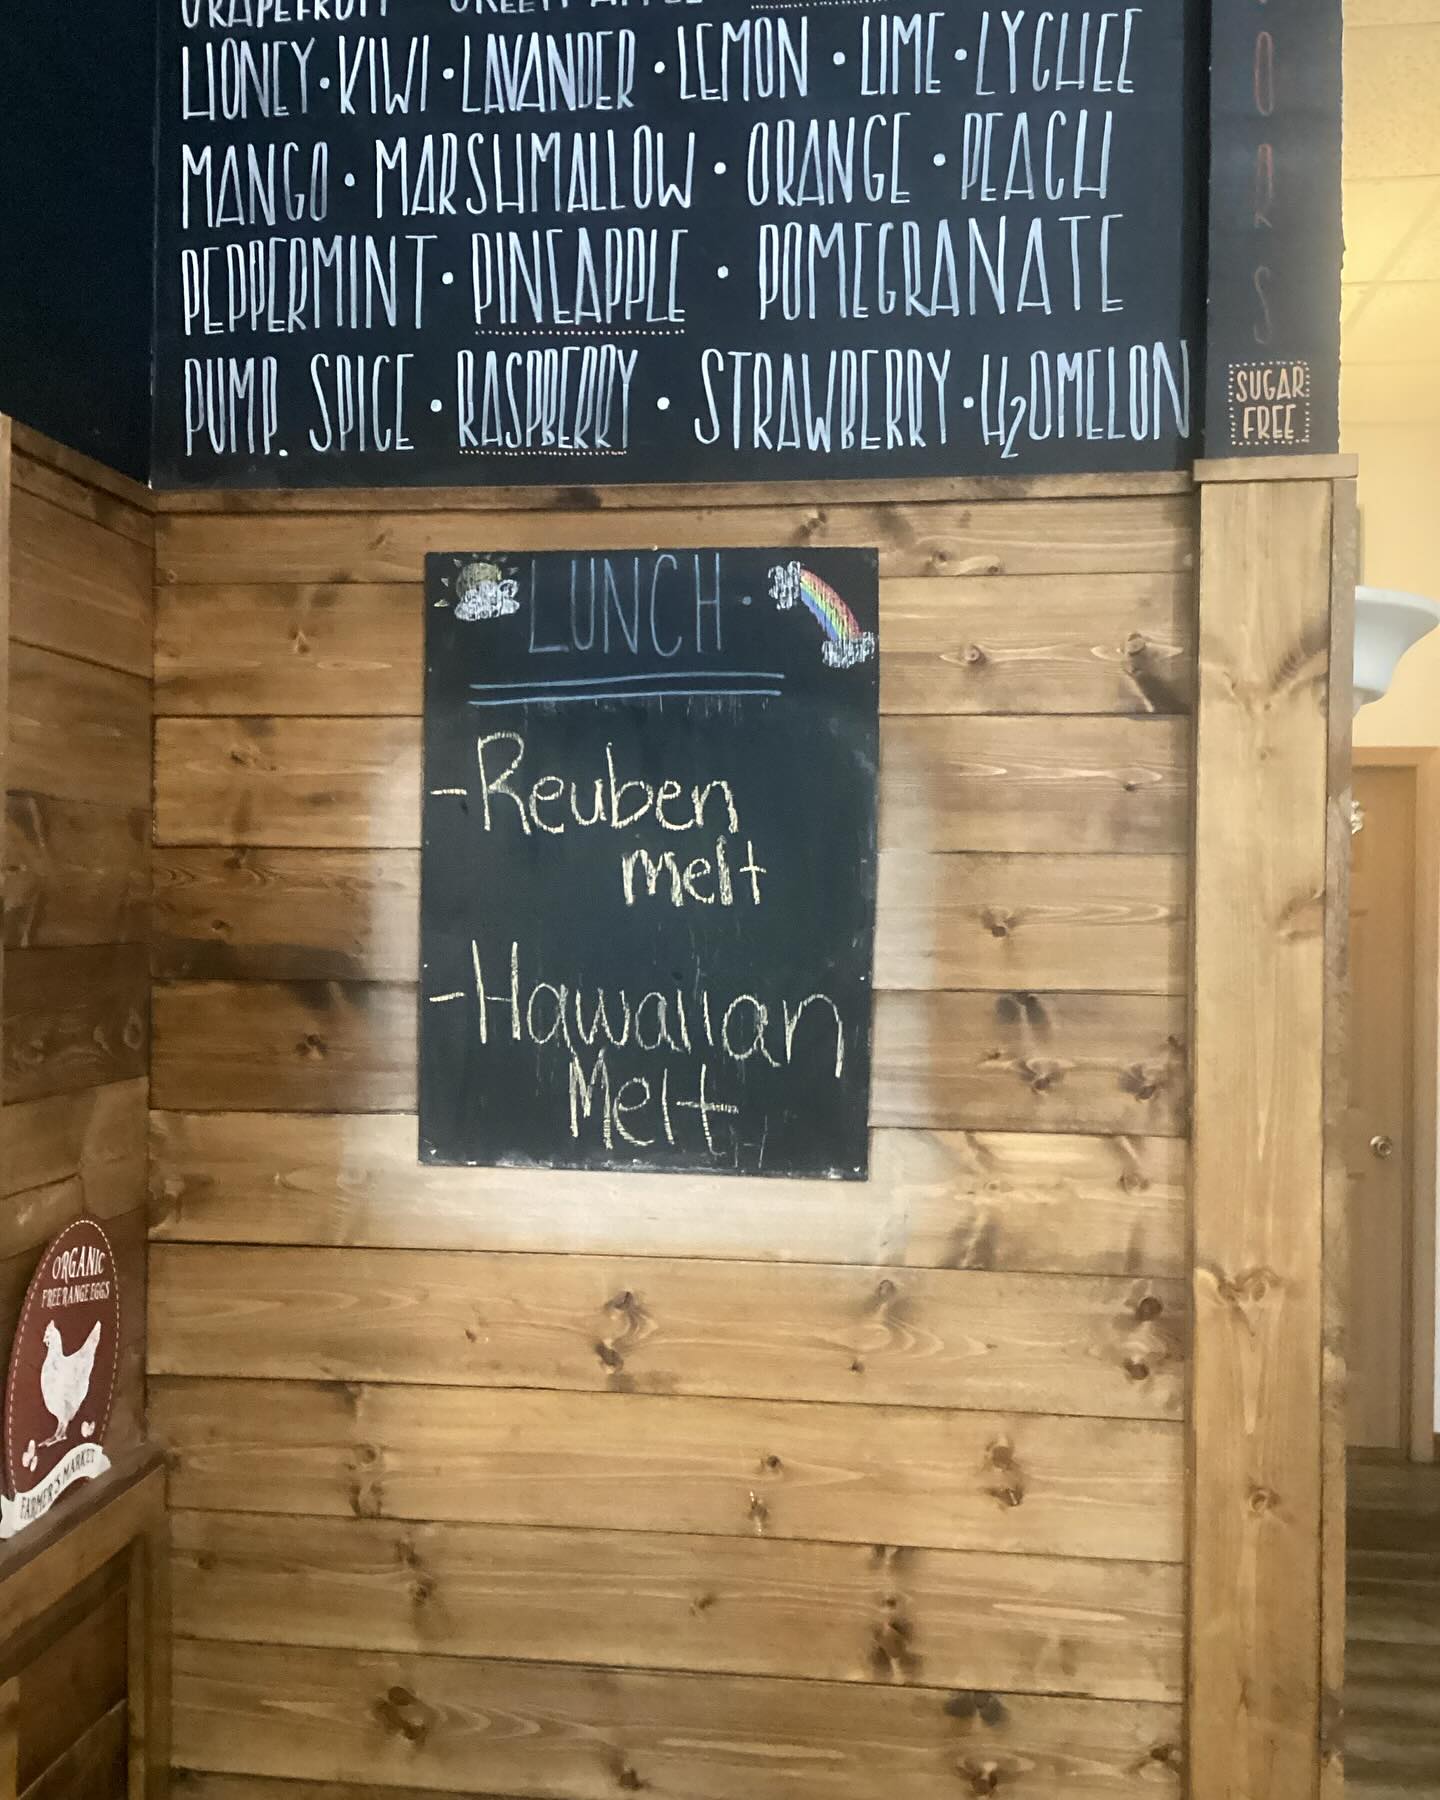 LIONEY • KIWI • LAVANDER • LEMON • LIME • LYCHEE
MANGO • MARSHMALLOW • ORANGE • PEACH
PEPPERMINT • PINEAPPLE • POMEGRANATE
PUMP. SPICE • RASPBERRY • STRAWBERRY • H2OMELON
SUGAR
FREE
LUNCH •
-Reuben
melt
-Hawaiian
Melt
ORGANIC
FREE RANGE EGGS
FARMER'S MARKET